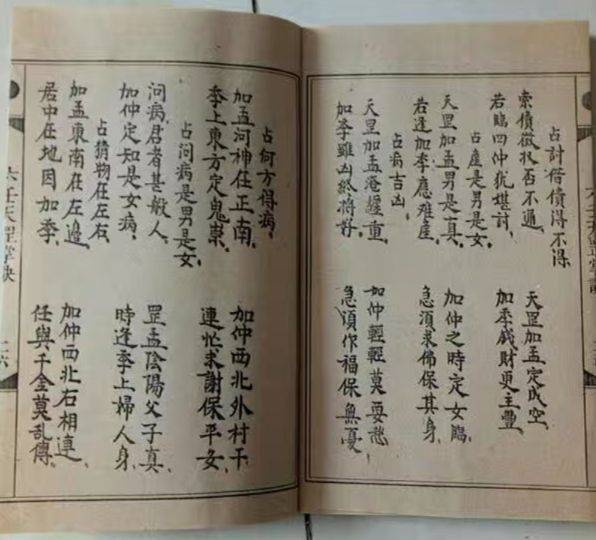 占討借債得不得
索債徵收否不通、天罡加孟定成空、
若臨四仲猶堪討、加季錢財更主豐、
占產是男是女
天罡加孟男是真、加仲之時定女臨、
若逢加季應難產、急須求佛保其身、
占病吉凶
天罡加孟淹纏重、如仲輕輕莫要愁
加季雖凶終將好、急須作福保無憂
占何方得病、
加孟河神在正南、加仲西北外村干
季上東方定鬼祟、連忙求謝保平安、
占問病是男是女、
問病君者甚般人、罡孟陰陽父子真、
加仲定知是女病、時逢季上婦人身、
占猜物在左右
加孟東南在左邊、加仲西北右相連、
居中在地因加季、任與千金莫亂傳、
六壬天罡掌訣
二六